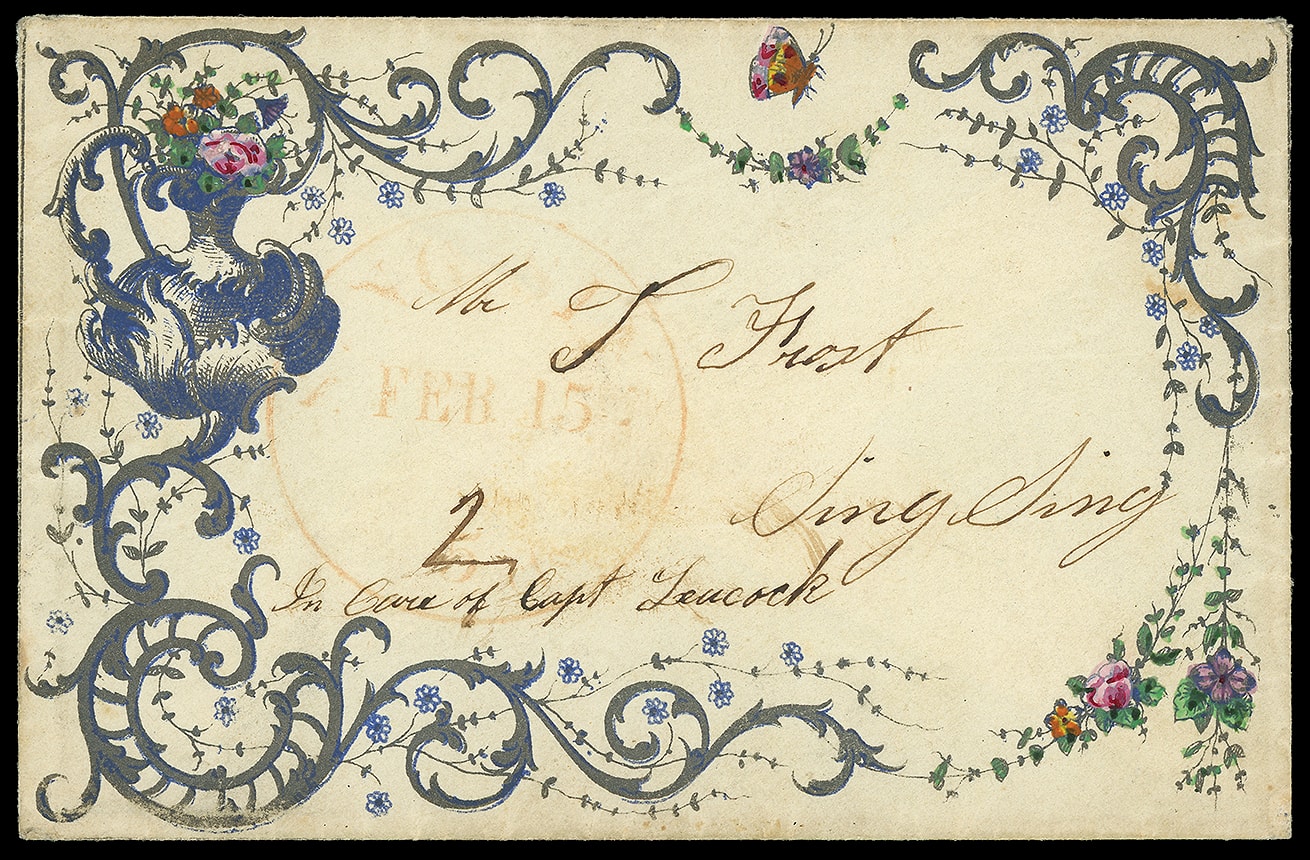 Mr T Frost
FEB 15
Sing Sing
2
In Care of Capt Leacock